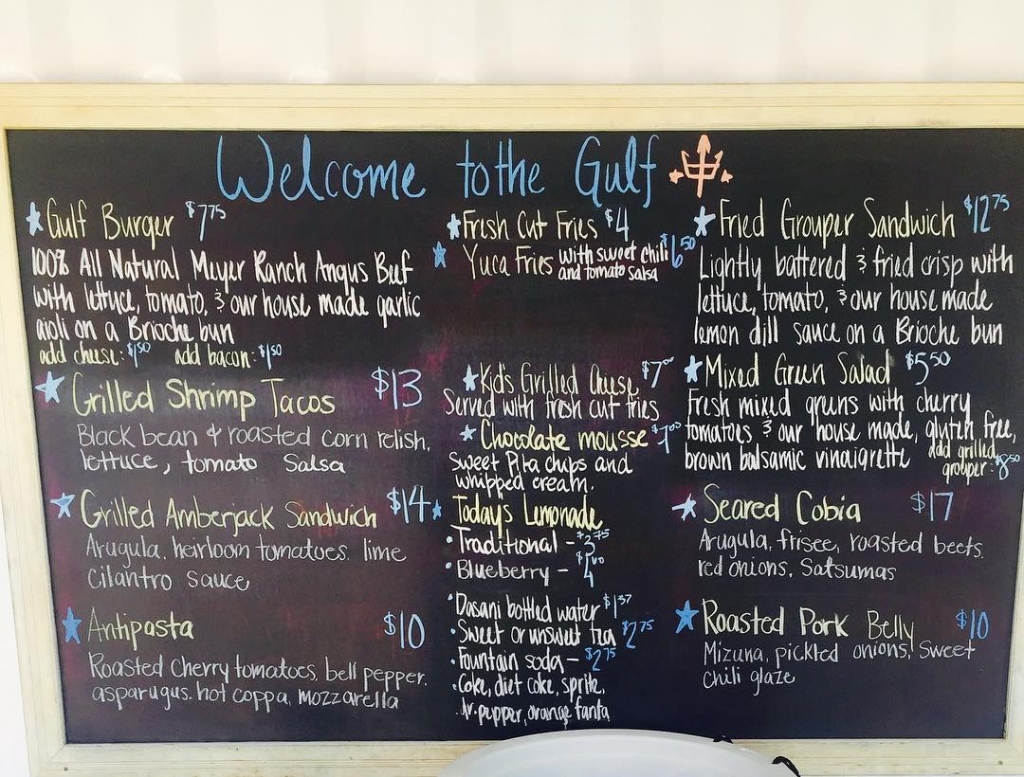 Welcome to the Gulf
Gulf Burger $7.75
100% All Natural Meyer Ranch Angus Beef
with lettuce, tomato, & our house made garlic
aioli on a Brioche bun
add cheese: $1.50 add bacon: $1.50
Grilled Shrimp Tacos $13
Black bean & roasted corn relish,
lettuce, tomato salsa
Grilled Amberjack Sandwich $14
Arugula, heirloom tomatoes, lime
Cilantro sauce
Antipasta $10
Roasted Cherry tomatoes, bell pepper,
asparagus, hot coppa, mozzarella
Fresh Cut Fries $4
Yuca Fries with sweet chili $6.50
and tomato salsa
Kid's Grilled Cheese $7.00
Served with fresh cut fries
Chocolate mousse
Sweet Pita chips and
whipped cream.
Today's Lemonade
Traditional - $3.75
Blueberry - $4
Dasani bottled water $1.37
Sweet or unsweet tea $2.75
Fountain soda - $2.75
Coke, diet coke, sprite,
dr. pepper, orange fanta
Fried Grouper Sandwich $12.75
Lightly battered & fried crisp with
lettuce, tomato, & our house made
lemon dill sauce on a Brioche bun
Mixed Green Salad $5.50
Fresh mixed greens with cherry
tomatoes, & our house made, gluten free,
brown balsamic vinaigrette add grilled
grouper: $8.50
Seared Cobia $17
Arugula, frisee, roasted beets,
red onions, Satsumas
Roasted Pork Belly $10
Mizuna, pickled onions, Sweet
chili glaze